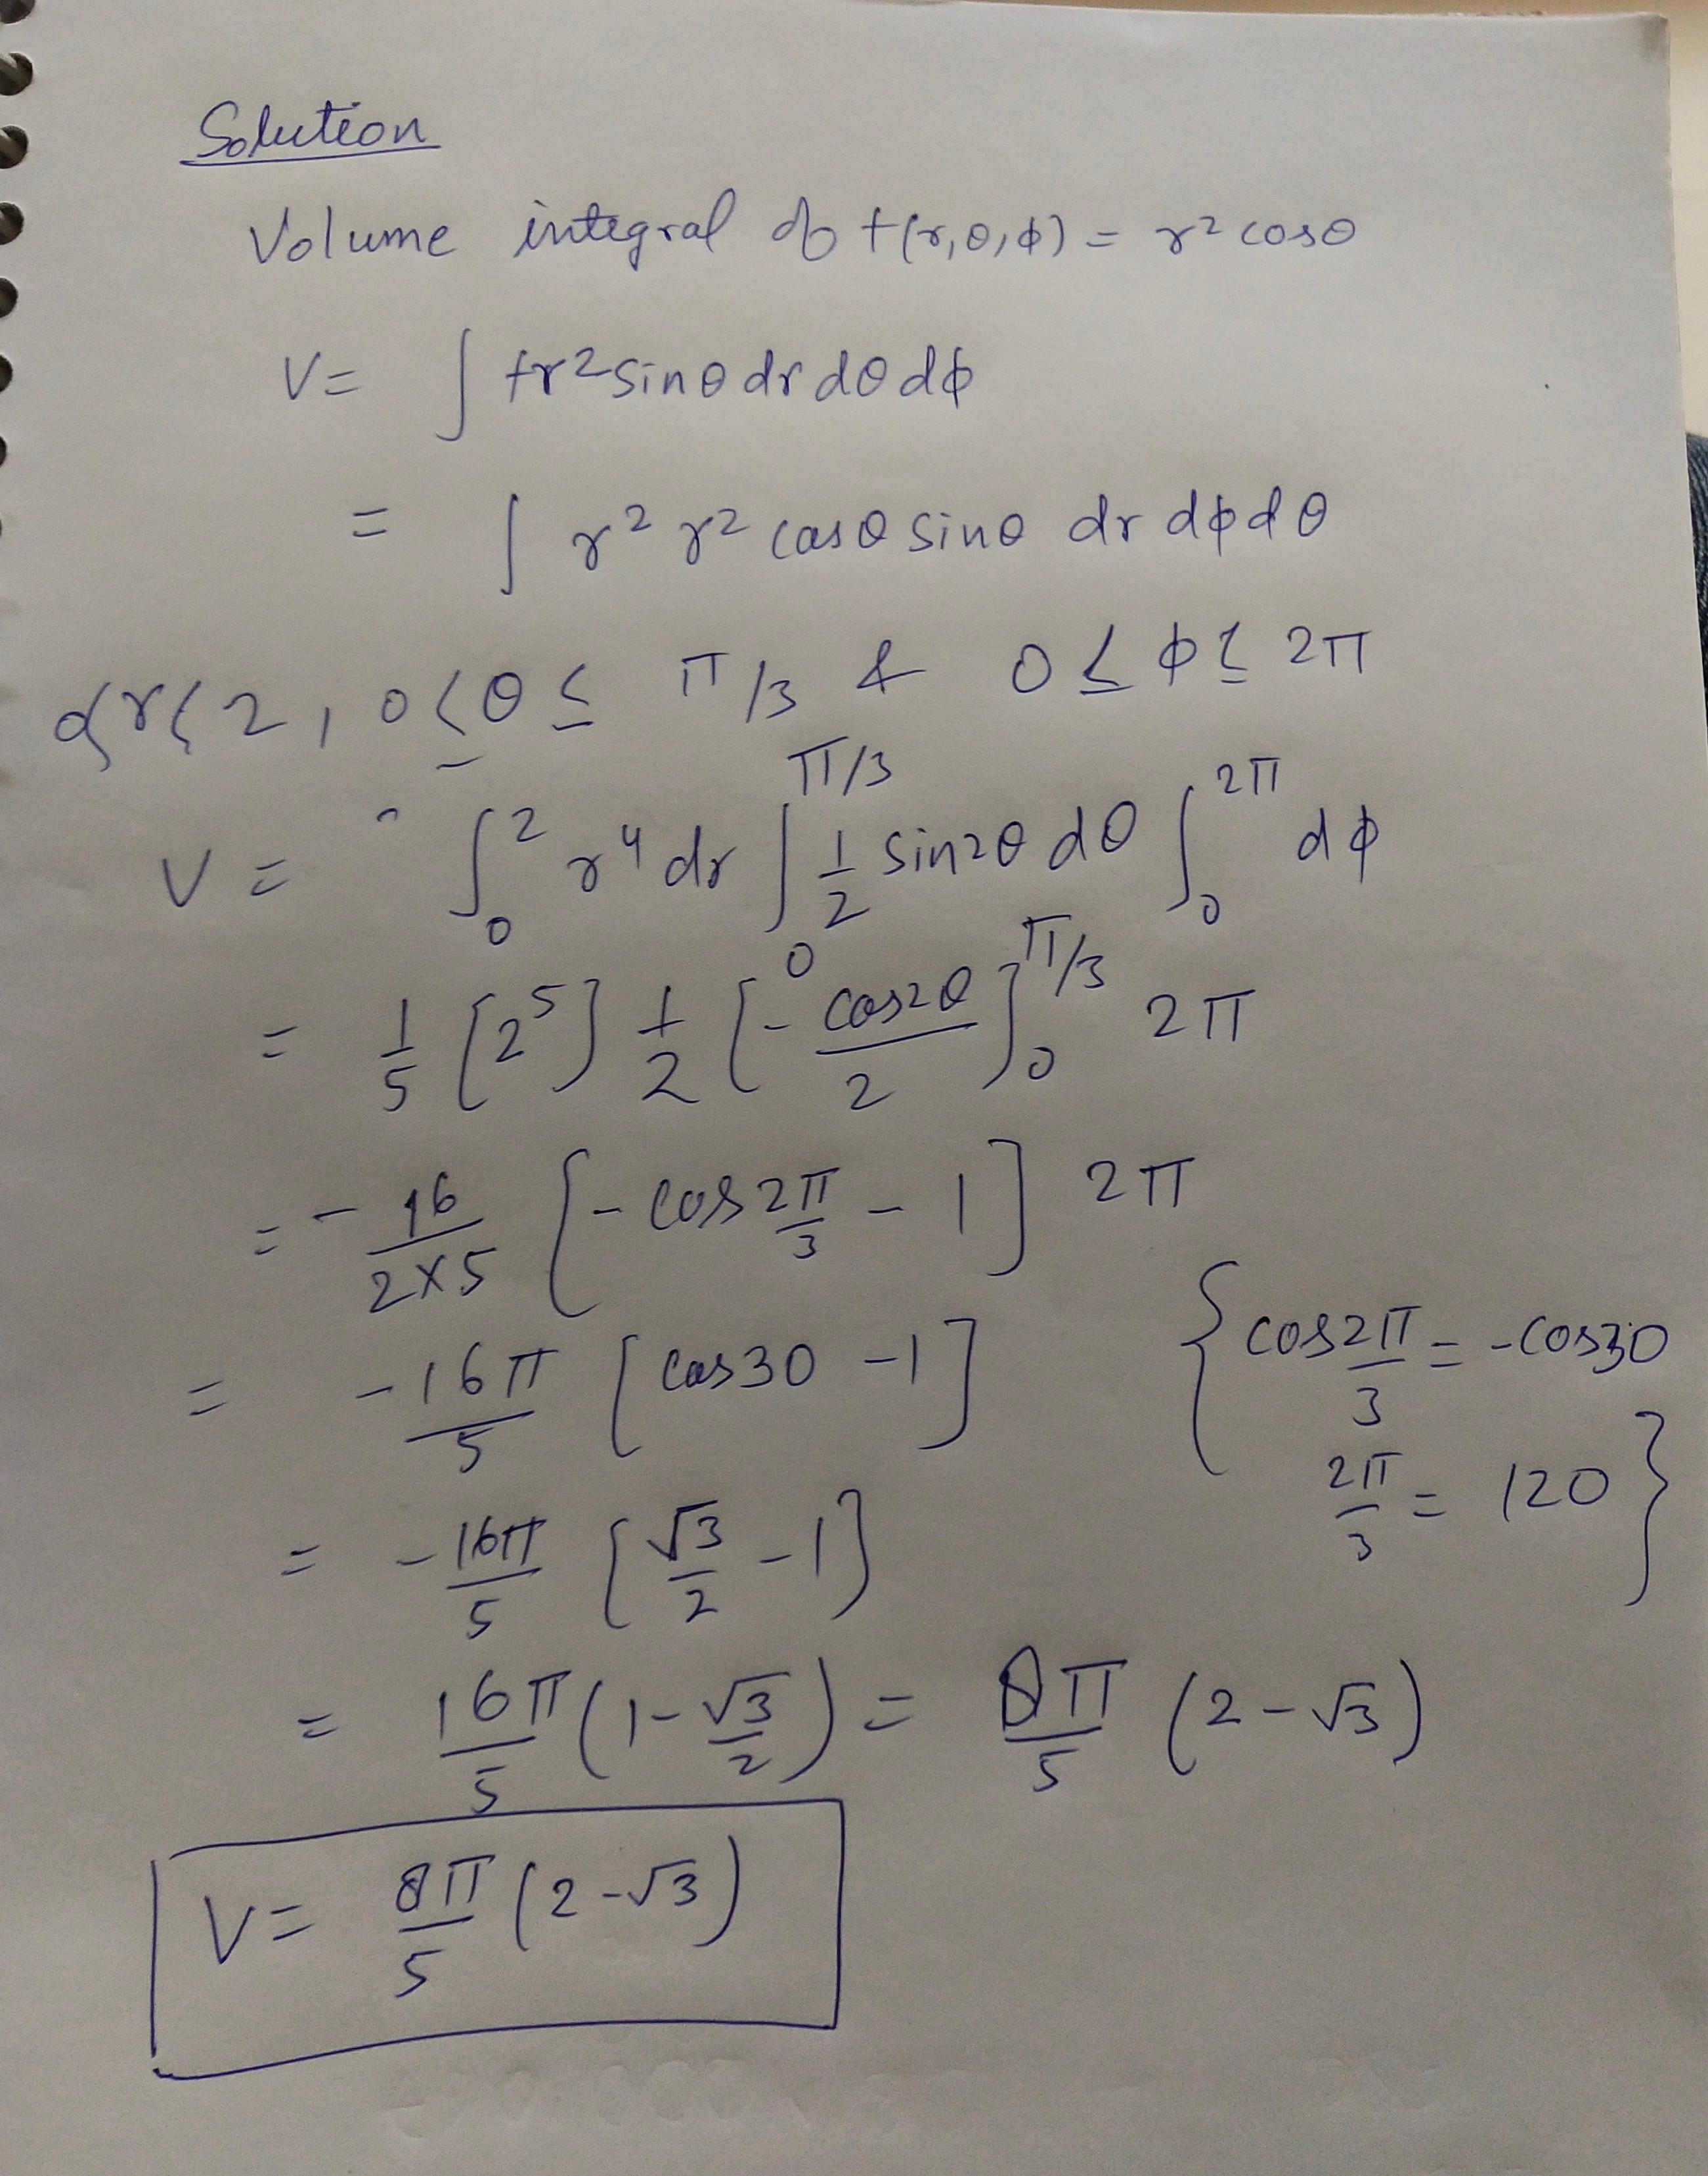 Solution
Volume integral of t(r,θ,φ) = r² cosθ
V = ∫ t r² sinθ dr dθ dφ
= ∫ r² r² cosθ sinθ dr dφ dθ
r < 2, 0 ≤ θ ≤ π/3 & 0 ≤ φ ≤ 2π
V = ∫₀² r⁴ dr ∫₀^{π/3} 1/2 sin2θ dθ ∫₀^{2π} dφ
= 1/5 [2⁵] 1/2 [- cos2θ/2]₀^{π/3} 2π
= - 16/(2×5) [- cos 2π/3 - 1] 2π
= -16π/5 [cos30 - 1] { cos 2π/3 = - cos30
2π/3 = 120 }
= -16π/5 [√3/2 - 1]
= 16π/5 (1 - √3/2) = 8π/5 (2 - √3)
V = 8π/5 (2 - √3)